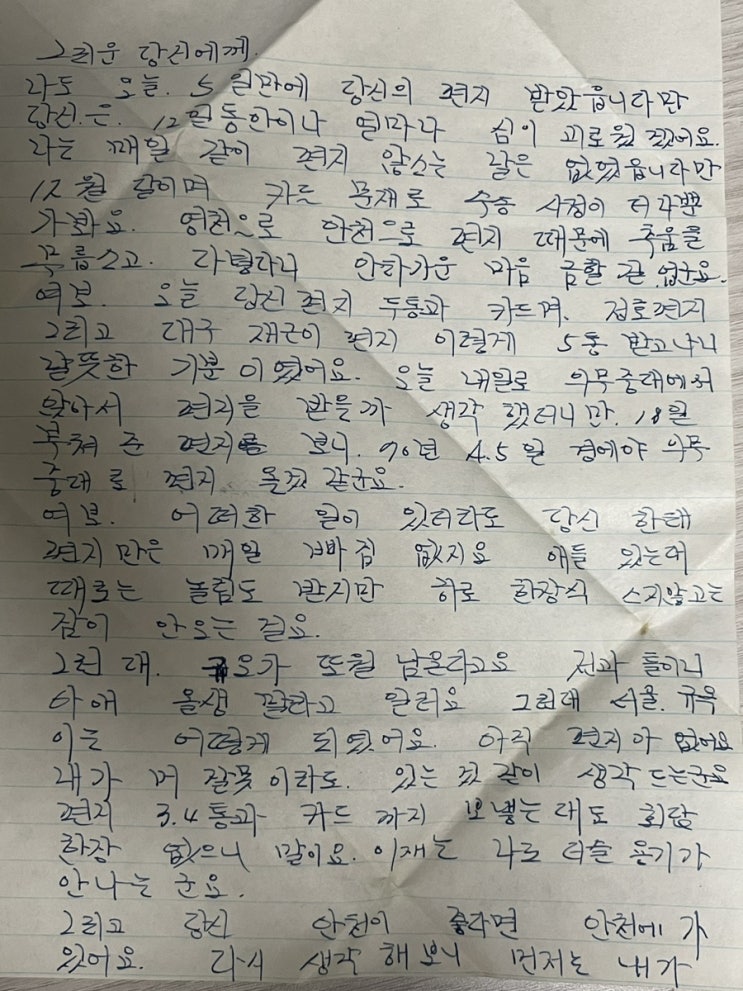 그리운 당신에게.
나도 오늘. 5일만에 당신의 편지 받았읍니다만
당신.은. 12일동안이나 얼마나 심이 괴로웠겠어요.
나는 매일 같이 편지 않스는 날은 없었읍니다만
12월 달이며 카드 문재로 수송 사정이 더 나뿐
가봐요. 영천으로 안천으로 편지 때문에 추움을
무릅스고. 다녔다니 안타가운 마음 금할 길 없군요.
여보. 오늘 당신 편지 두통과 카드며. 점호편지
그리고 대구 재근이 편지 이렇게 5통 받고나니
날뜻한 기분이였어요. 오늘 내일로 의무중대에서
앞아서 편지을 받을까 생각 했더니만. 18일
부쳐 준 편지를 보니. 90년 4.5일 경에야 의무
중대로 편지 올것 같군요.
여보. 어떠한 일이 있더라도 당신 한태
편지 만은 매일 빠짐 없지요 애들 있는데
때로는 놀림도 받지만 하로 한장식 스지않고는
잠이 안오는 걸요.
그런대. 오가 또월 남온다고요 전과 틀이니
아애 올생 말라고 일러요 그런데 서울. 규옥
이는 어떻게 되였어요. 아직 편지아 없어요
내가 머 잘못이라도. 있는것 같이 생각 드는군요
편지 3.4통과 카드 까지 보냈는대도 회답
한장 없으니 말이요. 이재는 나로 더슬 용기가
안나는 군요.
그리고 당신 안천이 좋다면 안천에 가
있어요. 다시 생각해보니 먼저는 내가